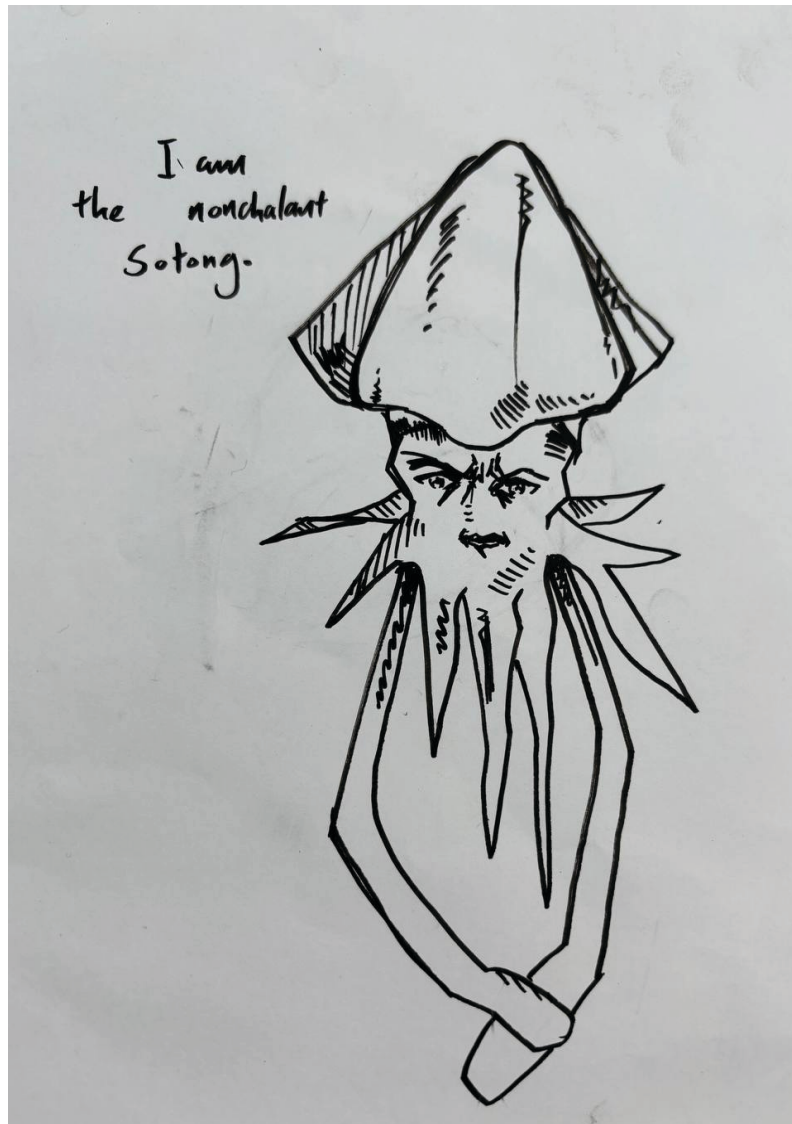 I am
the nonchalant
Sotong.